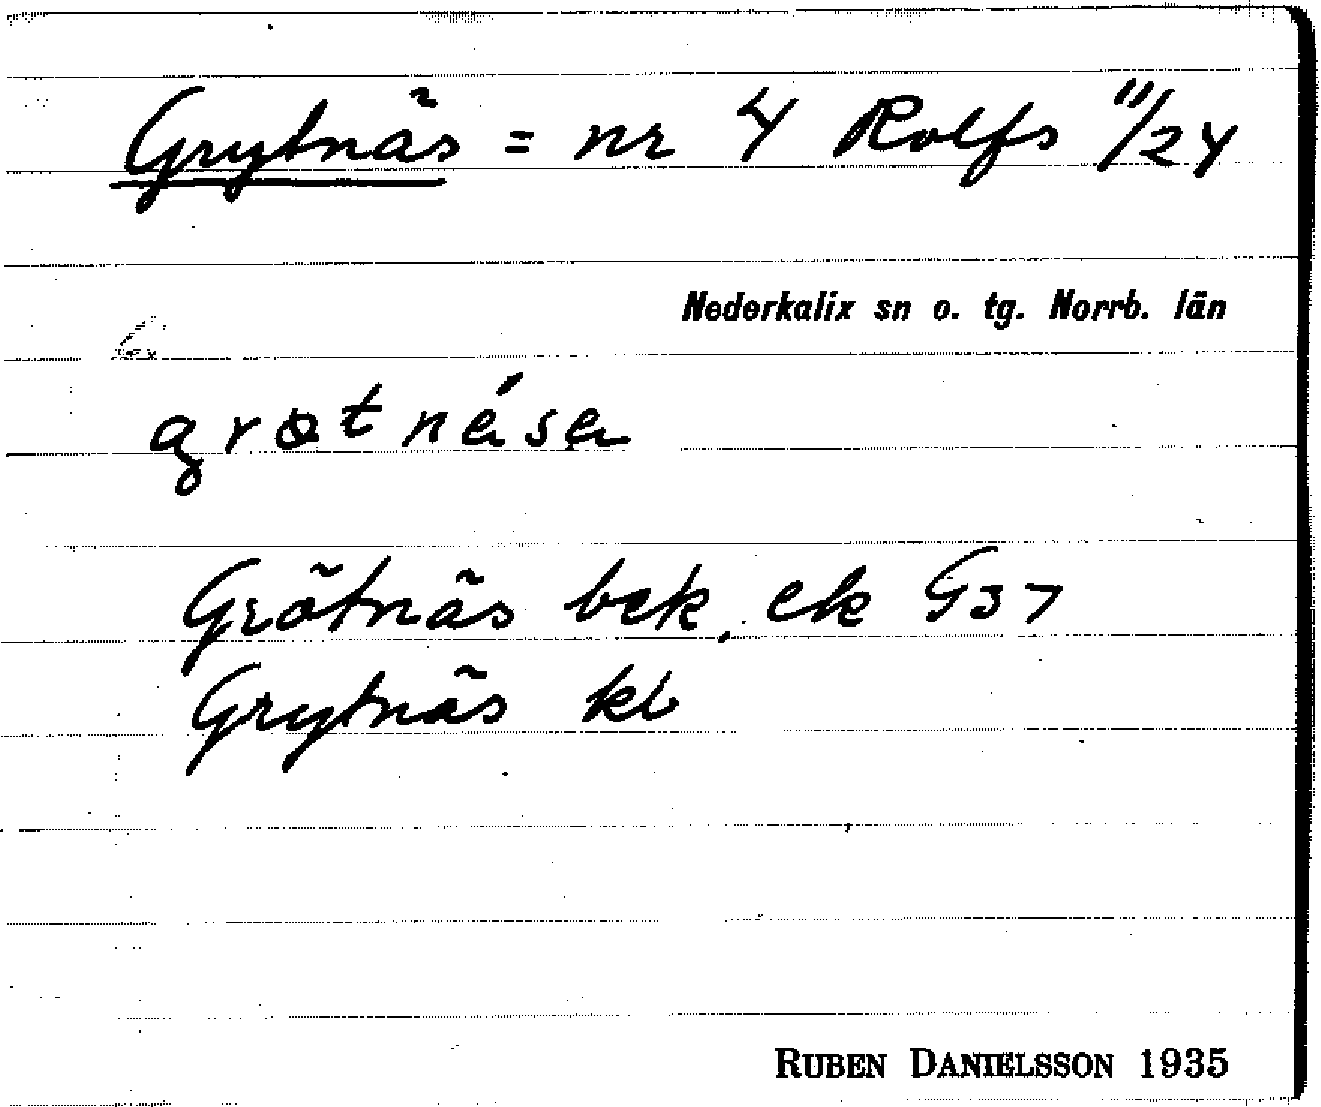 Grytnäs = nr 4 Rolfs 11/24
Nederkalix sn o. tg. Norrb. län
Grötnäs bek, ek G 37
Grytnäs kb
RUBEN DANIELSSON 1935